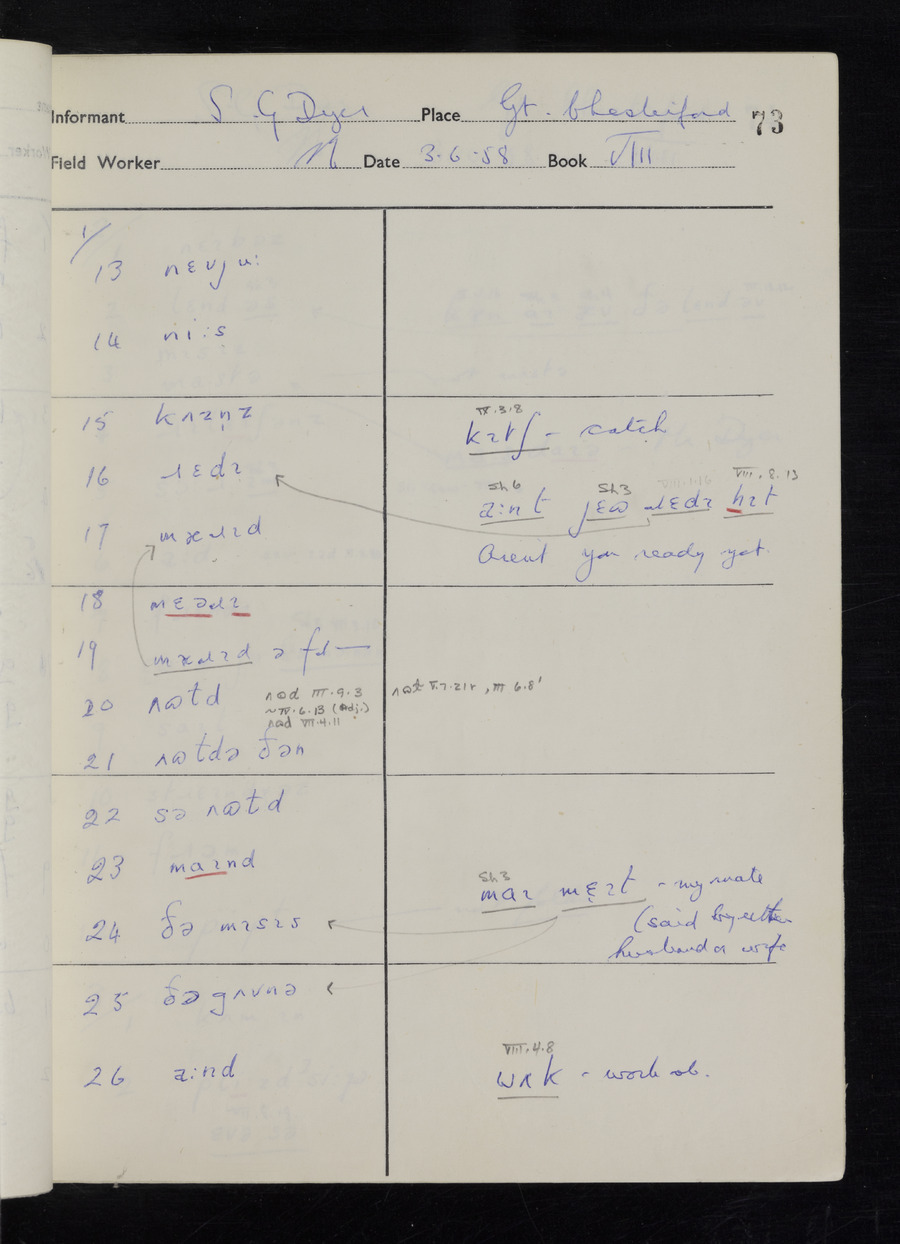 Informant S G Dyer Place Gt. Chesterford 73
Field Worker N Date 3.6.58 Book VIII
1/
13 nɛvju:
14 ni:s
15 kʌzn̩z
IV.3.8
kɪtʃ - catch
16 ɹɛdɪ
Sh6 Sh3 VIII.2.13
a:nt jɛɷ ɹɛdɪ hɪt
17 mæɹɪd
Arent you ready yet.
18 mɛəɹɪ
19 mæɹɪd ə fɹ—
20 ɹɷtd ɹɷd III.9.3 ɹɷt V.7.21r, III 6.8'
~IV.6.13 (adj.)
ɹɷd VII.4.11
21 ɹɷtdə ðən
22 sə ɹɷtd
23 maɪnd
Sh3
maɪ mɛ̝ɪt - my mate
(said by either
husband or wife
24 ðə mɪsɪs
25 ðə gʌvnə
26 a:nd
VIII.4.8
wʌk - work sb.